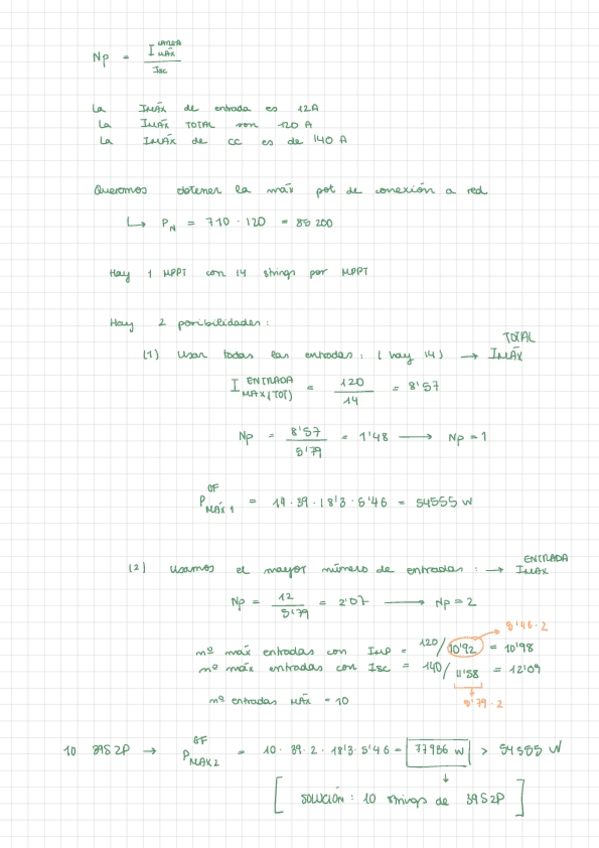 Np = I ENTRADA MÁX / Isc
La IMÁX de entrada es 12A
La IMÁX TOTAL son 120 A
La IMÁX de CC es de 140 A
Queremos obtener la máx pot de conexión a red
↳ PN = 710 · 120 = 85 200
Hay 1 MPPT con 14 strings por MPPT
Hay 2 posibilidades:
(1) Usar todas las entradas: (hay 14) → IMÁX TOTAL
I ENTRADA MAX(TOT) = 120 / 14 = 8'57
Np = 8'57 / 5'79 = 1'48 → Np = 1
P GF MÁX 1 = 14 · 39 · 18'3 · 5'46 = 54555 W
(2) Usamos el mayor número de entradas: → IMAX ENTRADA
Np = 12 / 5'79 = 2'07 → Np = 2
5'46 · 2
nº máx entradas con Imp = 120/10'92 = 10'98
nº máx entradas con Isc = 140/11'58 = 12'09
nº entradas MÁX = 10
5'79 · 2
10 39S2P → P GF MAX2 = 10 · 39 · 2 · 18'3 · 5'46 = 77986 W > 54555 W
[SOLUCIÓN: 10 strings de 39S2P]